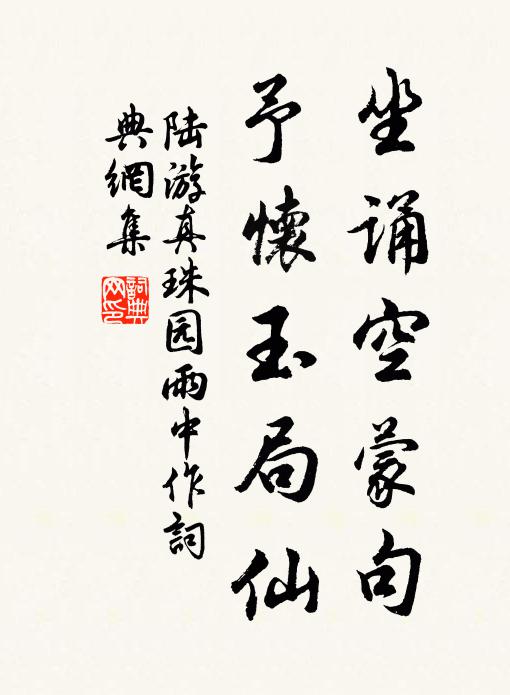 坐诵空蒙句
予懷玉局仙
陆游真珠园雨中作詞
典網集
詞典网印